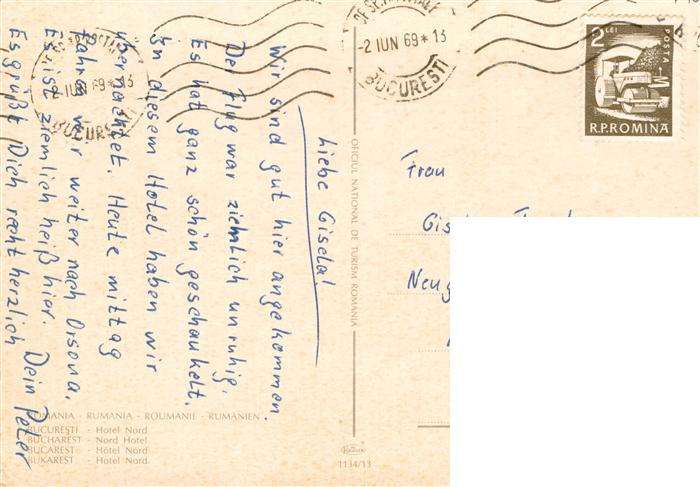 Liebe Gisela!
Wir sind gut hier angekommen.
Der Flug war ziemlich unruhig.
Es hat ganz schön geschaukelt.
In diesem Hotel haben wir
übernachtet. Heute mittag
fahren wir weiter nach Orsova.
Es ist ziemlich heiß hier.
Es grüßt Dich recht herzlich Dein Peter
ROMANIA - RUMANIA - ROUMANIE - RUMANIEN
BUCUREŞTI - Hotel Nord
BUCHAREST - Nord Hotel
BUCAREST - Hotel Nord
BUKAREST - Hotel Nord.
OFICIUL NATIONAL DE TURISM ROMANIA
1134/13
-2 IUN 69*13
BUCUREŞTI
IUN 69*13
BUCUREŞTI
2 LEI
POSTA
R.P.ROMINA
Frau